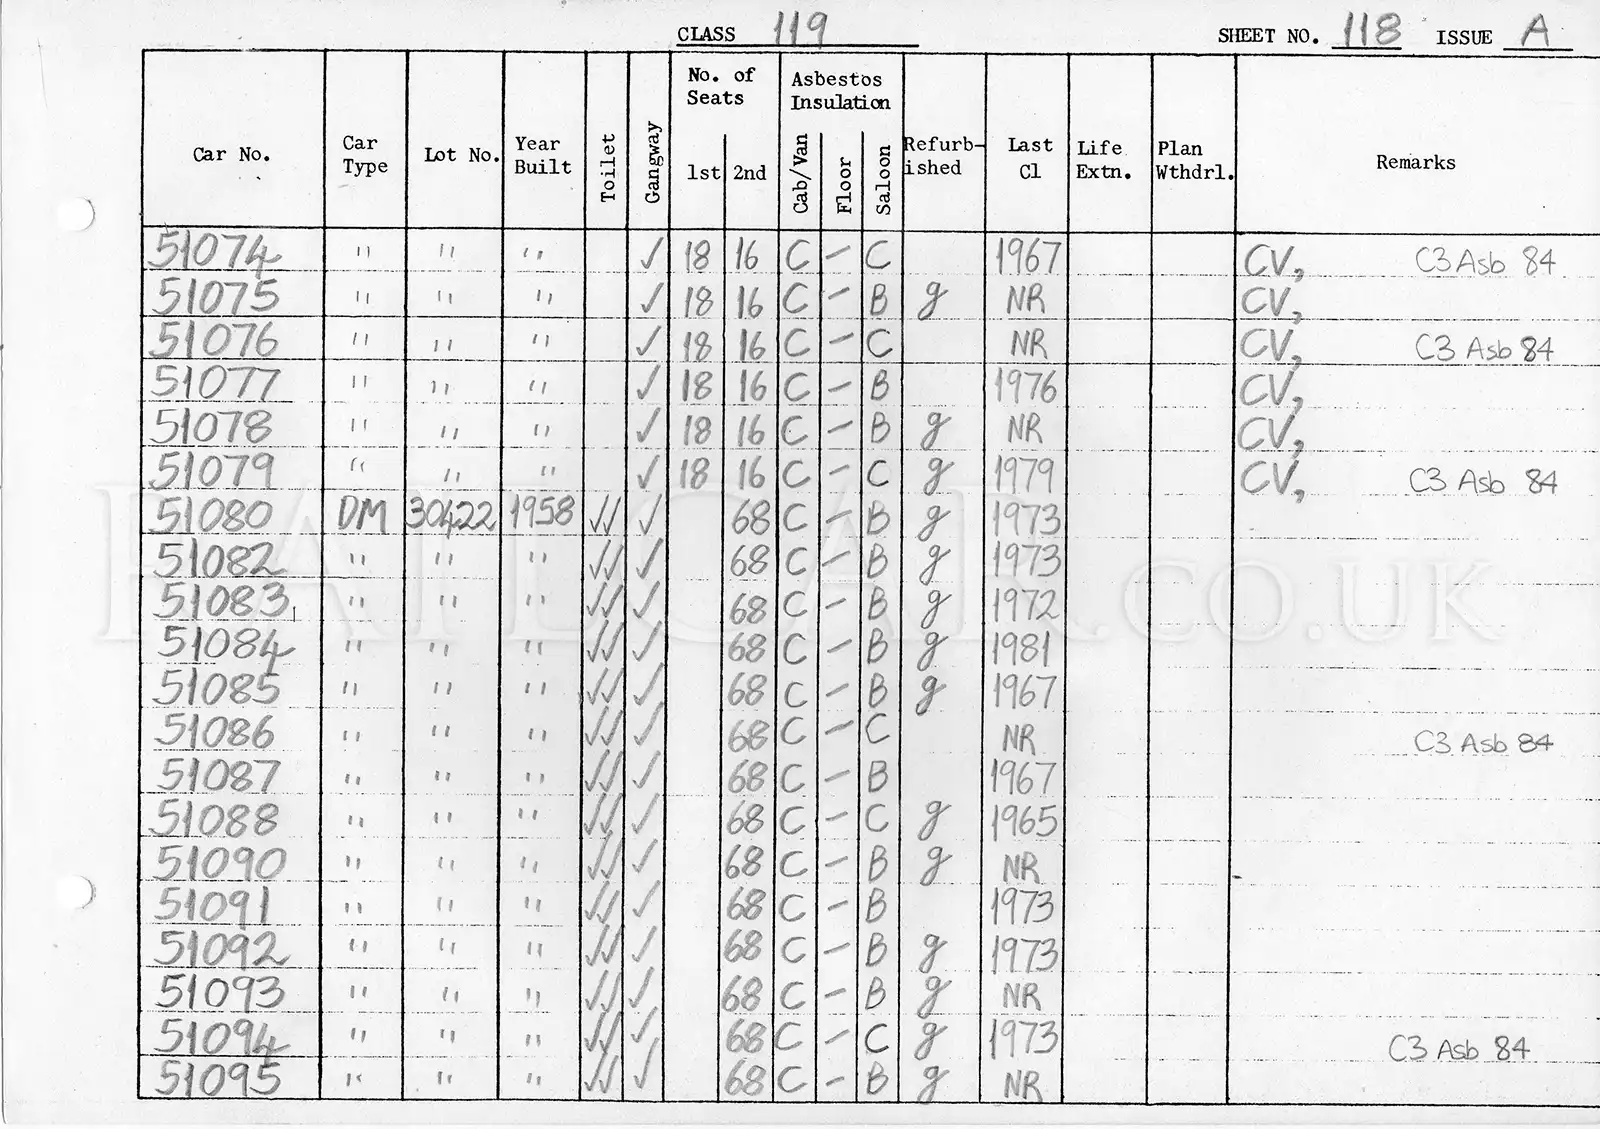 CLASS 119 SHEET NO. 118 ISSUE A
Car No. Car Type Lot No. Year Built Toilet Gangway No. of Seats 1st 2nd Asbestos Insulation Cab/Van Floor Saloon Refurb-ished Last Cl Life Extn. Plan Wthdrl. Remarks
51074 " " " ✓ 18 16 C — C 1967 CV, C3 Asb 84
51075 " " " ✓ 18 16 C — B g NR CV,
51076 " " " ✓ 18 16 C — C NR CV, C3 Asb 84
51077 " " " ✓ 18 16 C — B 1976 CV,
51078 " " " ✓ 18 16 C — B g NR CV,
51079 " " " ✓ 18 16 C — C g 1979 CV, C3 Asb 84
51080 DM 30422 1958 ✓✓ ✓ 68 C — B g 1973
51082 " " " ✓✓ ✓ 68 C — B g 1973
51083 " " " ✓✓ ✓ 68 C — B g 1972
51084 " " " ✓✓ ✓ 68 C — B g 1981
51085 " " " ✓✓ ✓ 68 C — B g 1967
51086 " " " ✓✓ ✓ 68 C — C NR C3 Asb 84
51087 " " " ✓✓ ✓ 68 C — B 1967
51088 " " " ✓✓ ✓ 68 C — C g 1965
51090 " " " ✓✓ ✓ 68 C — B g NR
51091 " " " ✓✓ ✓ 68 C — B 1973
51092 " " " ✓✓ ✓ 68 C — B g 1973
51093 " " " ✓✓ ✓ 68 C — B g NR
51094 " " " ✓✓ ✓ 68 C — C g 1973 C3 Asb 84
51095 " " " ✓✓ ✓ 68 C — B g NR
RAILCAR.CO.UK